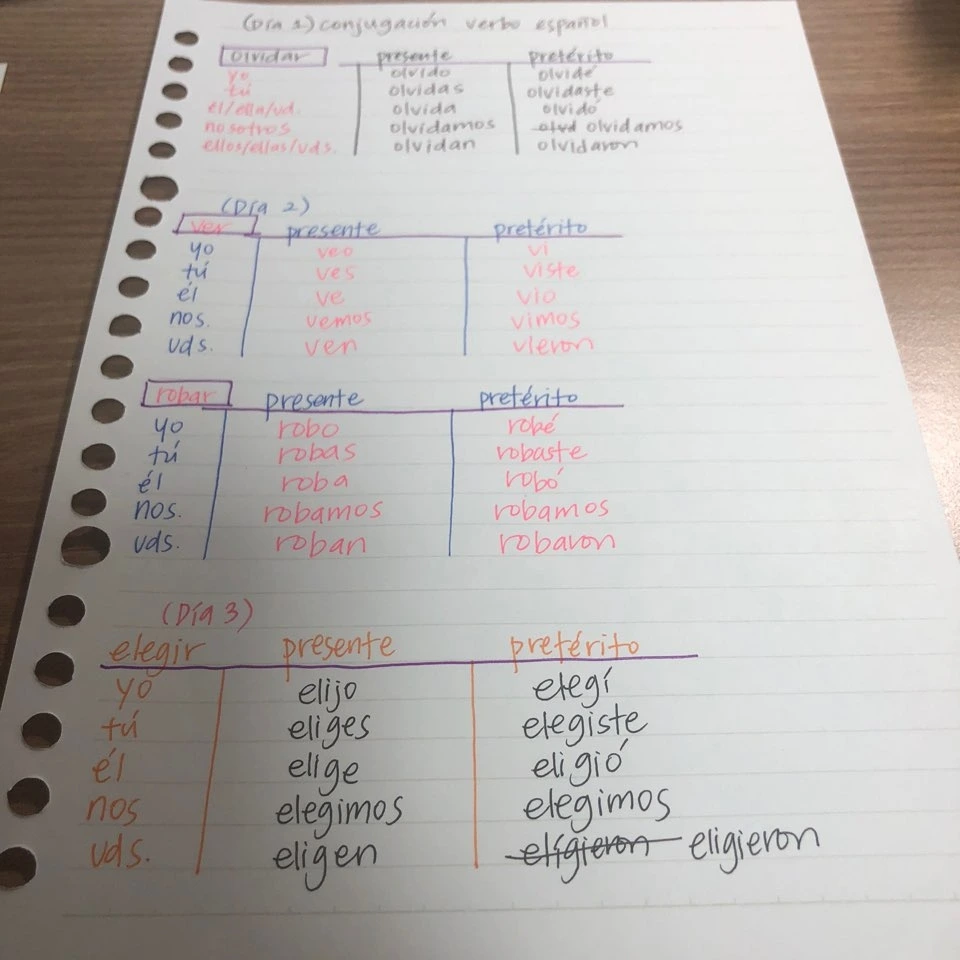 (Día 1) conjugación verbo español
olvidar presente pretérito
yo olvido olvidé
tú olvidas olvidaste
él/ella/ud. olvida olvidó
nosotros olvidamos olvd olvidamos
ellos/ellas/uds. olvidan olvidaron
(Día 2)
ver presente pretérito
yo veo vi
tú ves viste
él ve vio
nos. vemos vimos
uds. ven vieron
robar presente pretérito
yo robo robé
tú robas robaste
él roba robó
nos. robamos robamos
uds. roban robaron
(Día 3)
elegir presente pretérito
yo elijo elegí
tú eliges elegiste
él elige eligió
nos elegimos elegimos
uds. eligen elígieron eligieron